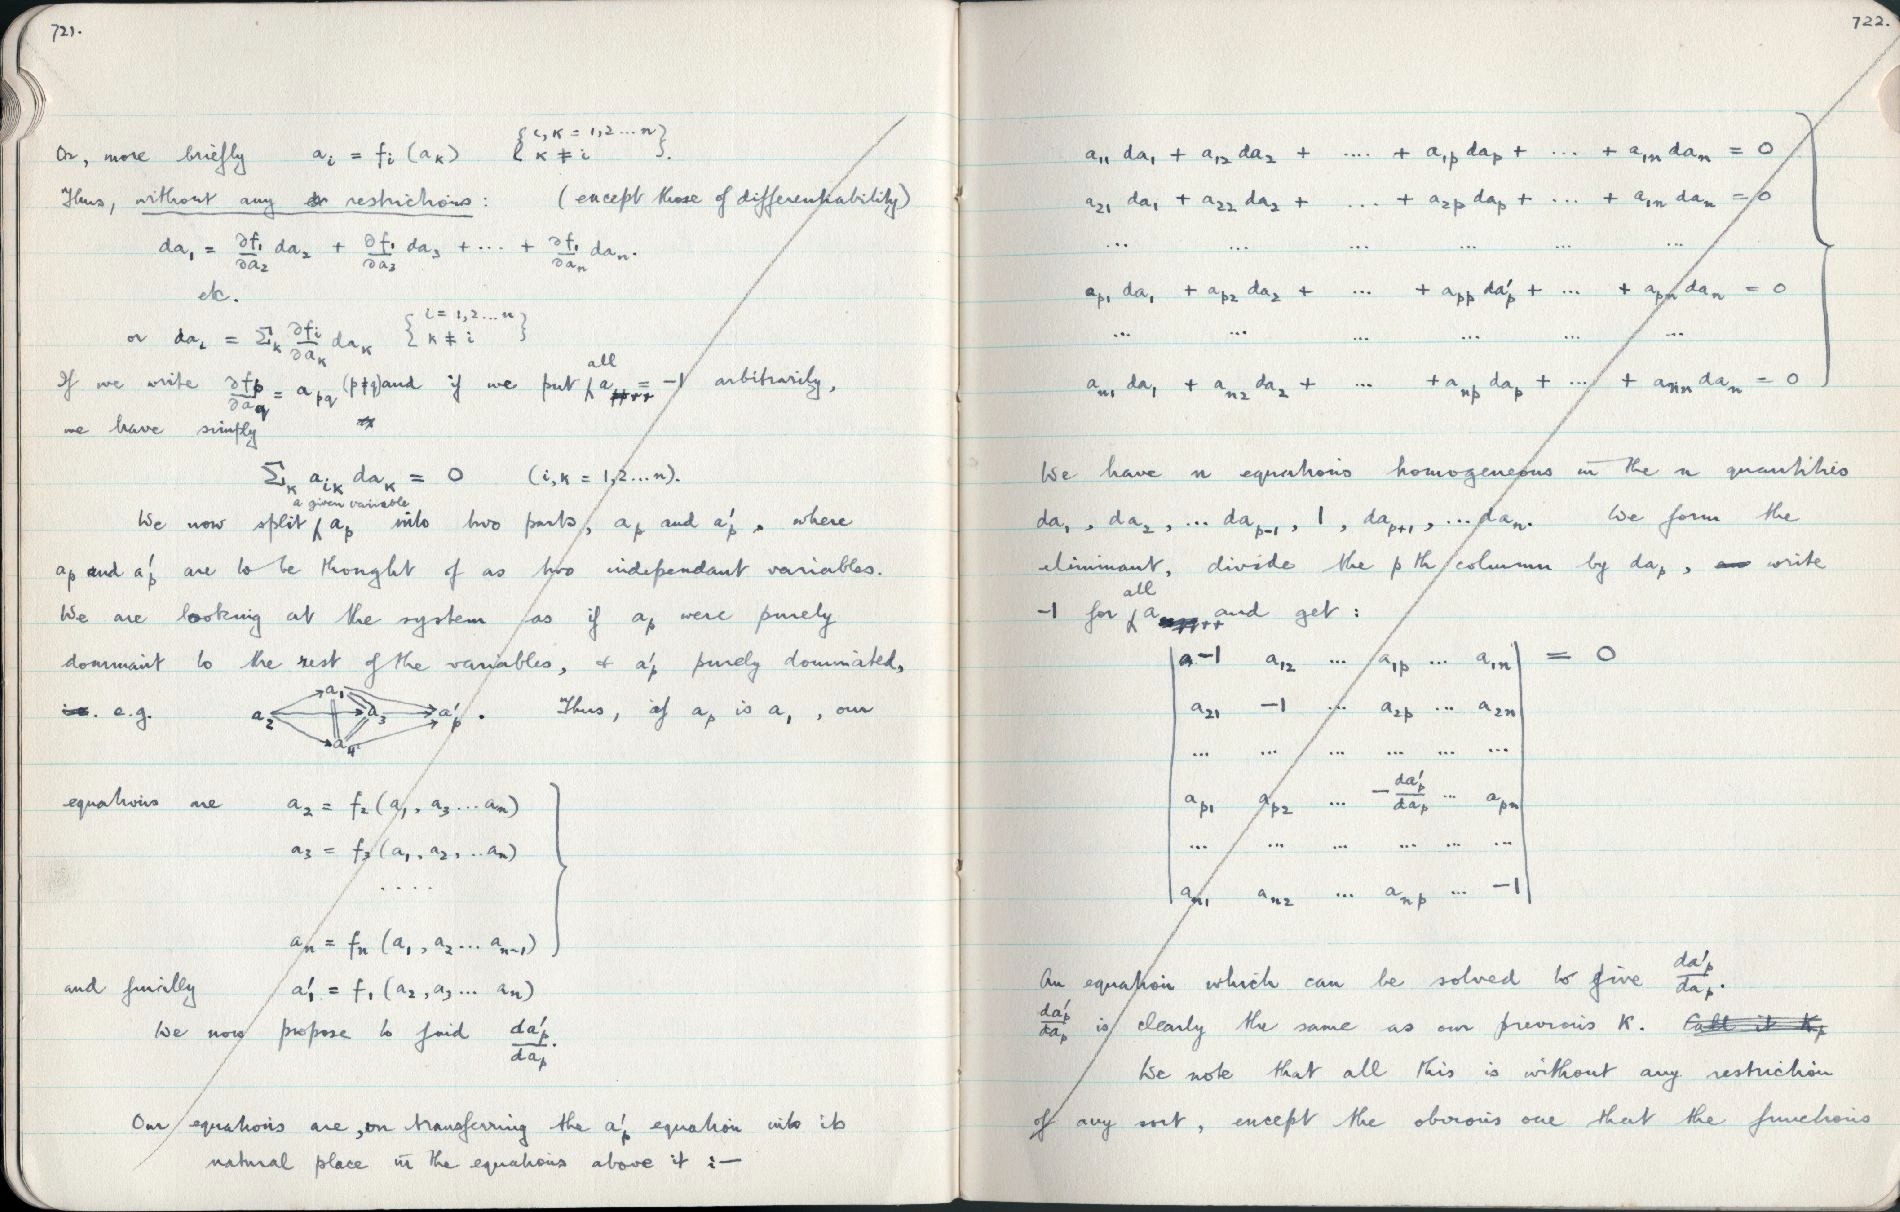 721.
Or, more briefly a_i = f_i (a_k) { i, k = 1,2...n k ≠ i }.
Thus, without any restrictions : (except those of differentiability)
da₁ = ∂f₁/∂a₂ da₂ + ∂f₁/∂a₃ da₃ + ... + ∂f₁/∂a_n da_n.
etc.
or da_i = Σ_k ∂f_i/∂a_k da_k { i = 1,2...n k ≠ i }
If we write ∂f_p/∂a_q = a_pq (p≠q) and if we put all a = -1 arbitrarily,
we have simply
Σ_k a_ik da_k = 0 (i, k = 1,2...n).
We now split a given variable a_p into two parts, a_p and a'_p, where
a_p and a'_p are to be thought of as two independant variables.
We are looking at the system as if a_p were purely
dominant to the rest of the variables, & a'_p purely dominated,
e.g. a₂ a₁ a₃ a₄ a'_p. Thus, if a_p is a₁, our
equations are a₂ = f₂ (a₁, a₃ ... a_n)
a₃ = f₃ (a₁, a₂, .. a_n)
....
a_n = f_n (a₁, a₂ ... a_n-1)
and finally a'₁ = f₁ (a₂, a₃ ... a_n)
We now propose to find da'_p/da_p.
Our equations are, on transferring the a'_p equation into its
natural place in the equations above it :—
722.
a₁₁ da₁ + a₁₂ da₂ + .... + a_1p da_p + ... + a_1n da_n = 0
a₂₁ da₁ + a₂₂ da₂ + ... + a_2p da_p + ... + a_1n da_n = 0
... ... ... ... ... ...
a_p1 da₁ + a_p2 da₂ + ... + a_pp da'_p + ... + a_pn da_n = 0
... ... ... ... ... ...
a_n1 da₁ + a_n2 da₂ + ... + a_np da_p + ... + a_nn da_n = 0
We have n equations homogeneous in the n quantities
da₁, da₂, ... da_p-1, 1, da_p+1, ... da_n. We form the
eliminant, divide the p th column by da_p, write
-1 for all a and get :
| -1 a₁₂ ... a_1p ... a_1n | = 0
a₂₁ -1 ... a_2p ... a_2n
... ... ... ... ... ...
a_p1 a_p2 ... - da'_p/da_p ... a_pn
... ... ... ... ... ...
a_n1 a_n2 ... a_np ... -1
An equation which can be solved to give da'_p/da_p.
da'_p/da_p is clearly the same as our previous K. Call it K_p
We note that all this is without any restriction
of any sort, except the obvious one that the functions